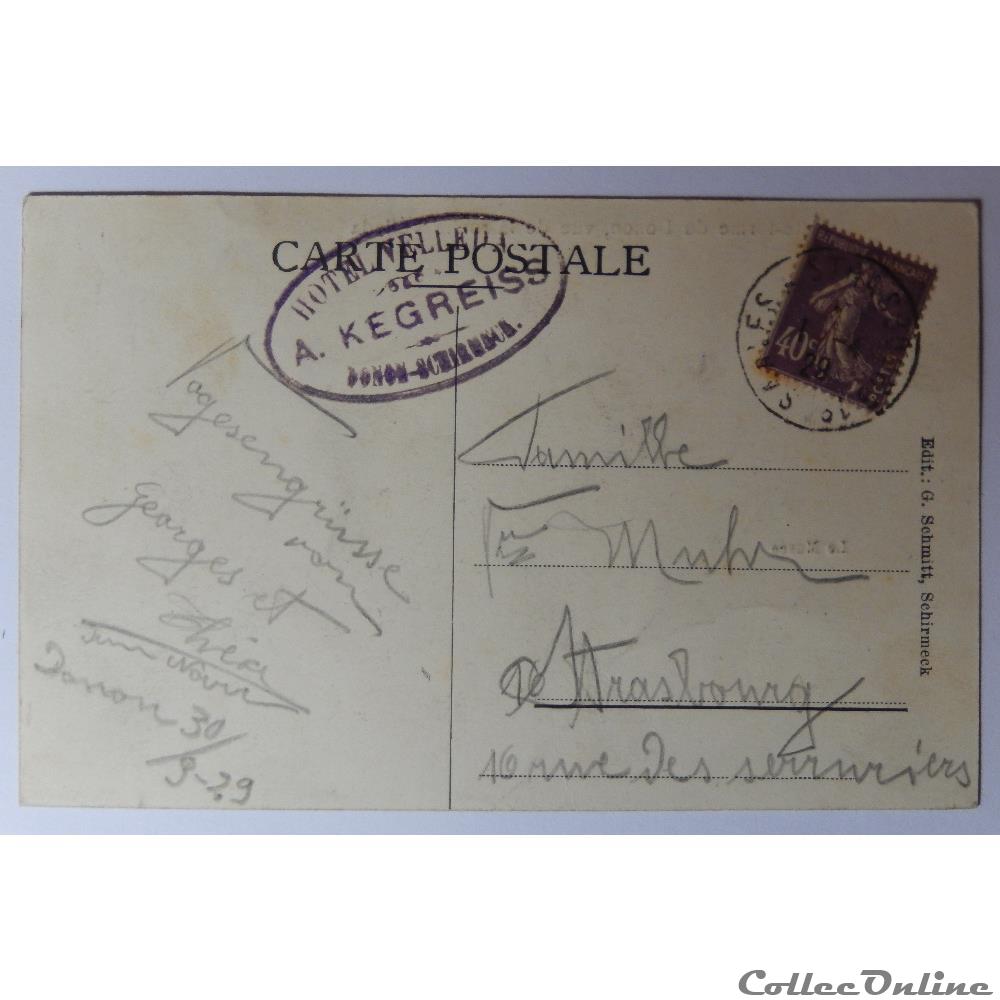 CARTE POSTALE
HOTEL VELLEDA
A. KEGREISS
DONON-SCHIRMECK.
40c
29
Vogesengrüsse
von
Georges et
Donon 30/9-29
Famille
Muhr
Strasbourg
16 rue des serruriers
Edit.: G. Schmitt, Schirmeck
CollecOnline